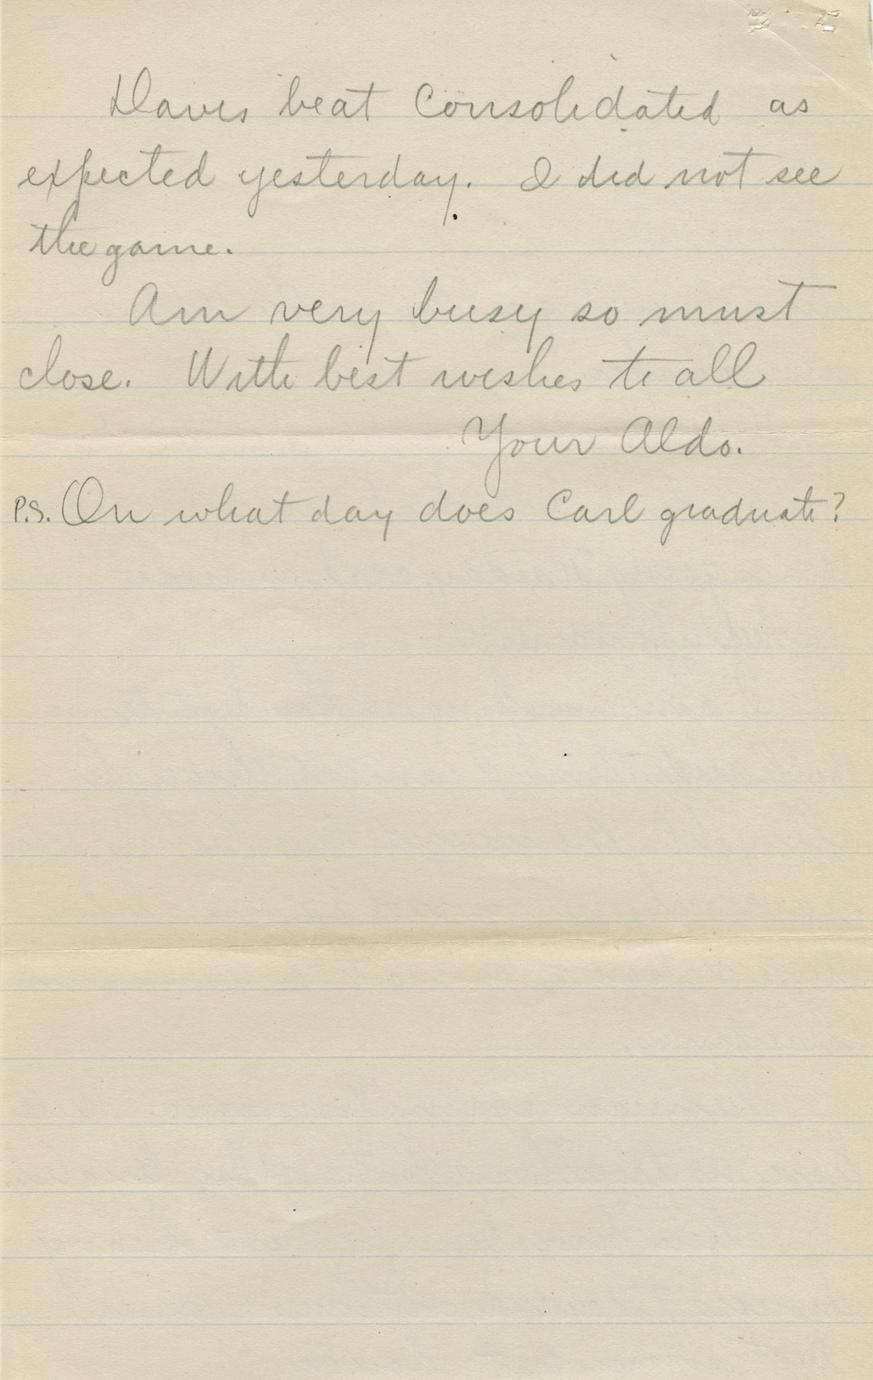 Davis beat Consolidated as
expected yesterday. I did not see
the game.
Am very busy so must
close. With best wishes to all
Your Aldo.
P.S. On what day does Carl graduate?